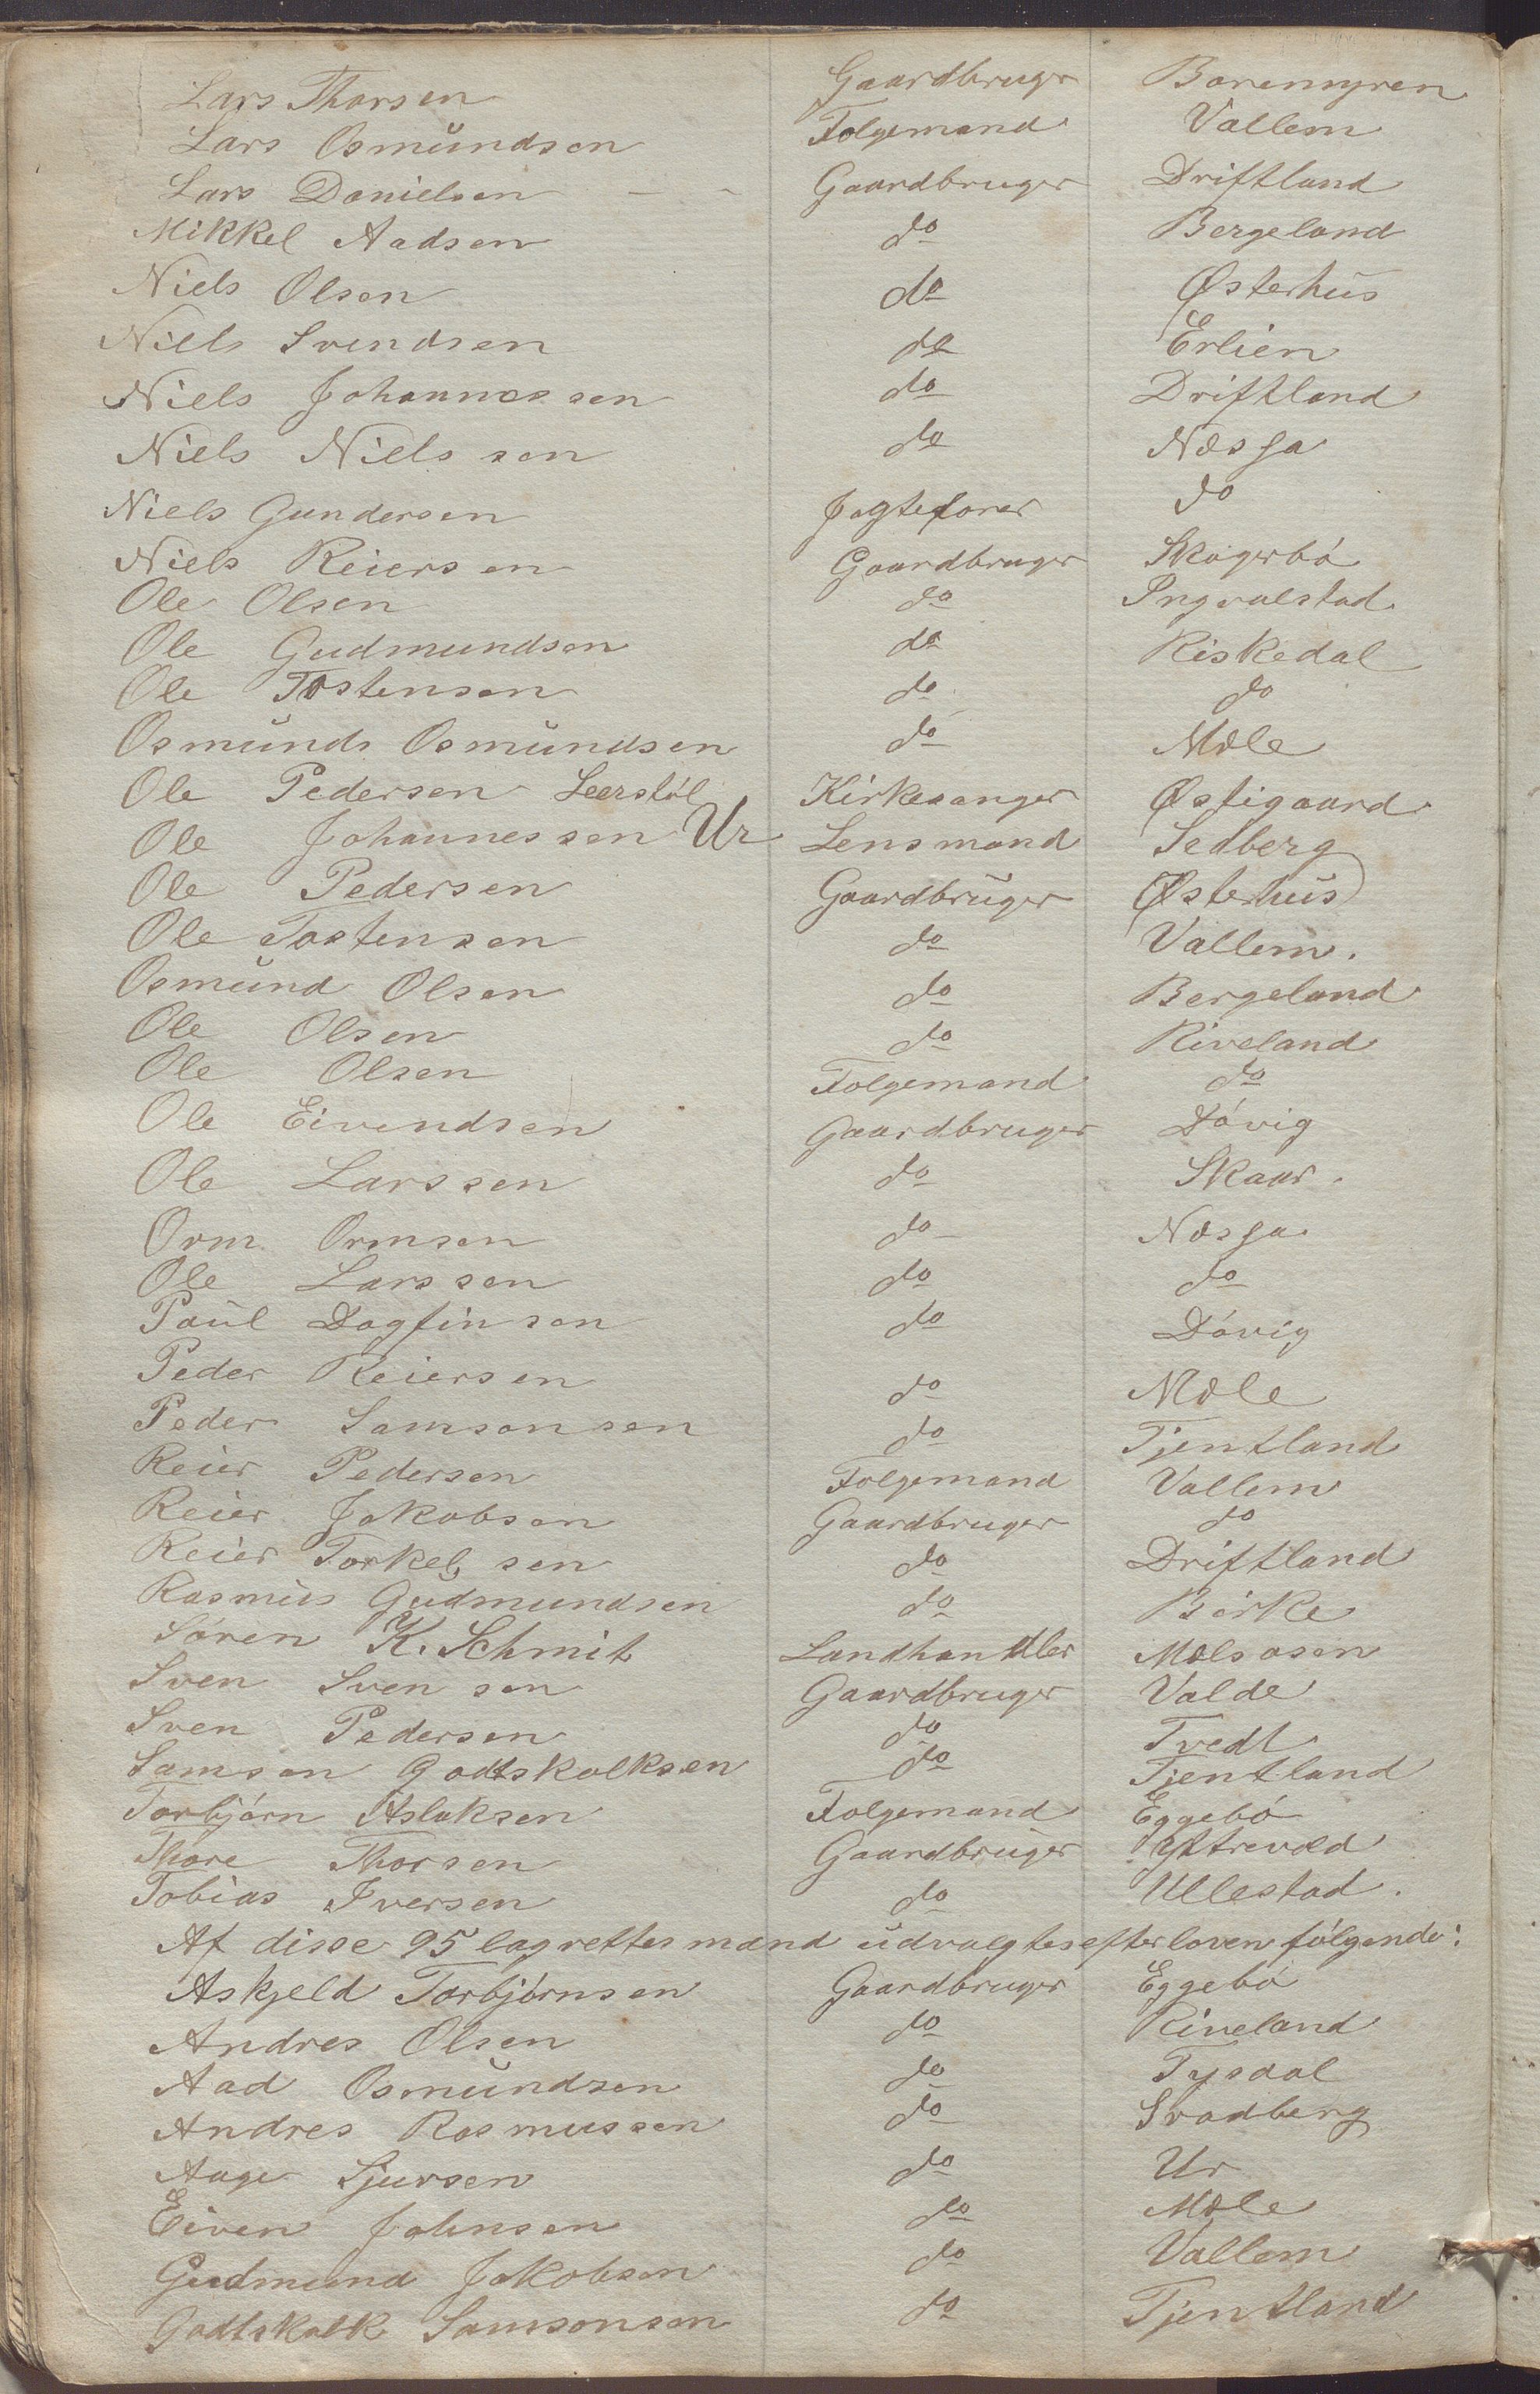 Lars Thorsen Gaardbrugr Borremyren
Lars Osmundsen Folgemand Vallem
Lars Danielsen - - Gaardbruger Driftland
Mikkel Aadsen do Bergeland
Niels Olsen do Østerhus
Niels Svendsen do Erlien
Niels Johannessen do Driftland
Niels Nielssen do Næssa
Niels Gundersen Jagteforer do
Niels Reiersen Gaardbruger Skogerbó
Ole Olsen do Ingvalstad
Ole Gudmundsen do Riskedal
Ole Tostensen do do
Osmund Osmundsen do Mæle
Ole Pedersen Leerstól Kirkesanger Østigaard
Ole Johannessen Ur Lensmand Sedberg
Ole Pedersen Gaardbruger Østerhus
Ole Tostensen do Vallem.
Osmund Olsen do Bergeland
Ole Olsen do Riveland
Ole Olsen Folgemand do
Ole Eivendsen Gaardbruger Dóvig
Ole Larssen do Skaar.
Orm Ormsen do Næssa
Ole Larssen do do
Paul Dagfinsen do Dóvig
Peder Reiersen do Mæle
Peder Samsonsen do Tjentland
Reier Pedersen Folgemand Vallem
Reier Jakobsen Gaardbruger do
Reier Torkelsen do Driftland
Rasmus Gudmundsen do Birke
Sóren K. Schmit Landhandler Mælsosen
Sven Svensen Gaardbruger Valde
Sven Pedersen do Tvedt
Samson Godtskalksen do Tjentland
Torbjórn Aslaksen Folgemand Eggebó
Thore Thorsen Gaardbruger Yttrevold
Tobias Iversen do Ullestad.
Af disse 95 lagrettesmænd udvalgtes efter loven fólgende:
Askjeld Torbjórnsen Gaardbruger Eggebó
Andres Olsen do Riveland
Aad Osmundsen do Tysdal
Andres Rasmussen do Svadberg
Aage Sjursen do Ur
Eiven Johnsen do Mæle
Gudmund Jakobsen do Vallem
Godtskalk Samsonsen do Tjentland